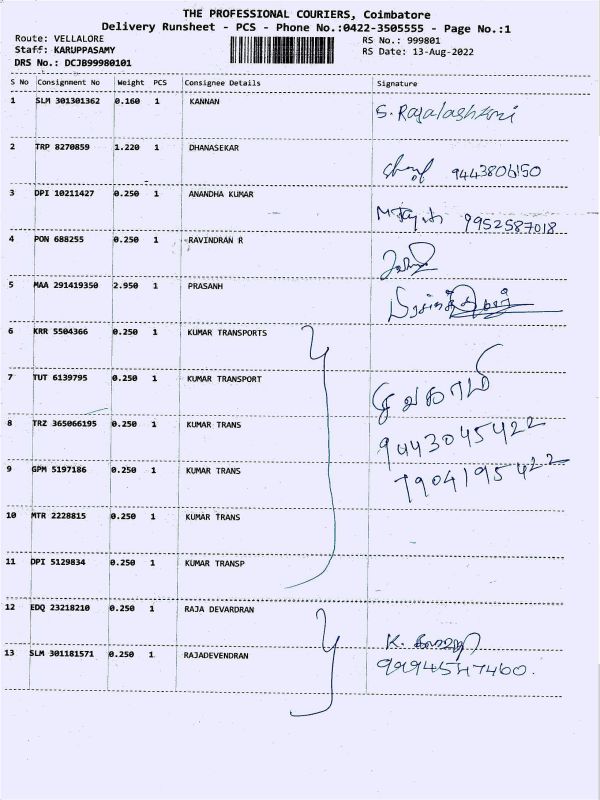 THE PROFESSIONAL COURIERS, Coimbatore
Delivery Runsheet - PCS - Phone No.:0422-3505555 - Page No.:1
Route: VELLALORE RS No.: 999801
Staff: KARUPPASAMY RS Date: 13-Aug-2022
DRS No.: DCJB99980101
S No Consignment No Weight PCS Consignee Details Signature
1 SLM 301301362 0.160 1 KANNAN S. Rajalashmi
2 TRP 8270859 1.220 1 DHANASEKAR 9443806150
3 DPI 10211427 0.250 1 ANANDHA KUMAR 9952587018
4 PON 688255 0.250 1 RAVINDRAN R
5 MAA 291419350 2.950 1 PRASANH
6 KRR 5504366 0.250 1 KUMAR TRANSPORTS
7 TUT 6139795 0.250 1 KUMAR TRANSPORT
8 TRZ 365066195 0.250 1 KUMAR TRANS 9443045422
9 GPM 5197186 0.250 1 KUMAR TRANS 7904195422
10 MTR 2228815 0.250 1 KUMAR TRANS
11 DPI 5129834 0.250 1 KUMAR TRANSP
12 EDQ 23218210 0.250 1 RAJA DEVARDRAN K.
13 SLM 301181571 0.250 1 RAJADEVENDRAN 9994547460.